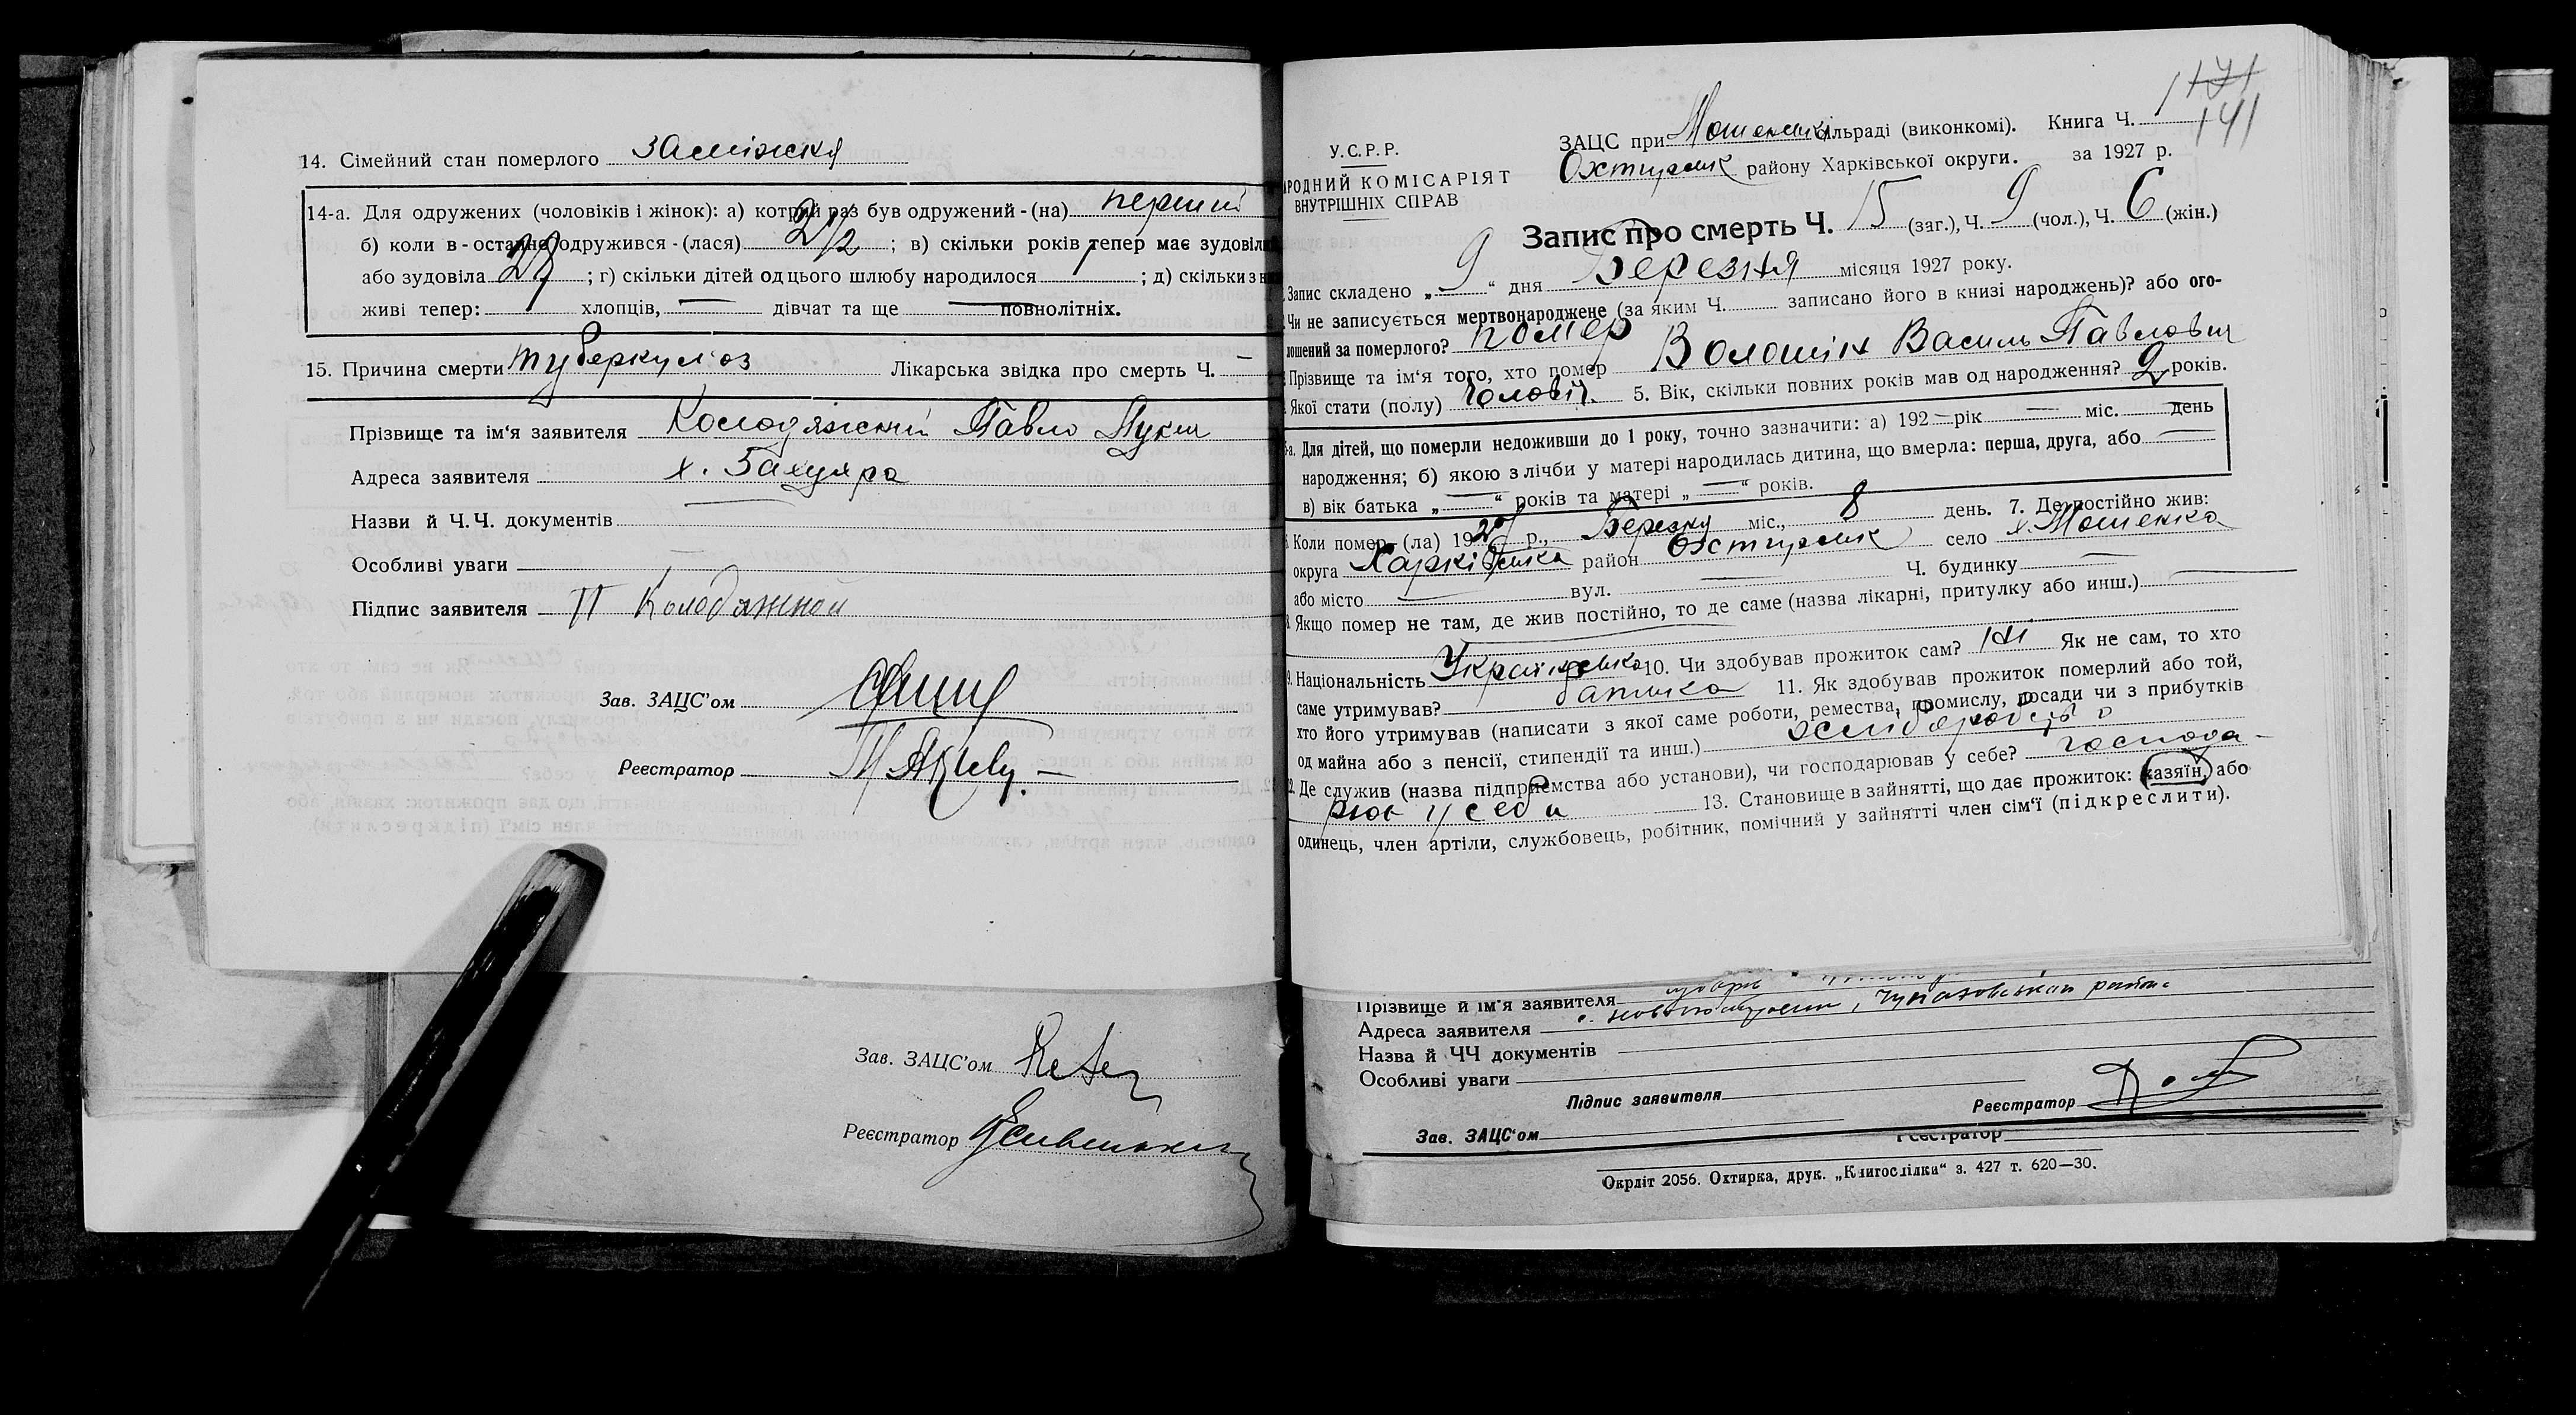 14. Сімейний стан померлого заміжня
14-а. Для одружених (чоловіків і жінок): а) котрий раз був одружений-(на) перший
б) коли в-останнє одружився-(лася) ; в) скільки років тепер має зудовілий
або зудовіла 27 ; г) скільки дітей од цього шлюбу народилося ; д) скільки з н
живі тепер: хлопців, — дівчат та ще — повнолітніх.
15. Причина смерти туберкульоз Лікарська звідка про смерть Ч. —
Прізвище та ім'я заявителя Колодяжний Павло Лукич
Адреса заявителя х.
Назви й Ч.Ч. документів —
Особливі уваги —
Підпис заявителя П Колодяжной
Зав. ЗАЦС'ом
Реєстратор
Зав. ЗАЦС'ом
Реєстратор
1 171
141
У.С.Р.Р.
РОДНИЙ КОМІСАРІЯТ
ВНУТРІШНІХ СПРАВ
ЗАЦС при Мошенській сільраді (виконкомі). Книга Ч. 1
Охтирськ району Харківської округи. за 1927 р.
Запис про смерть Ч. 15 (заг.), Ч. 9 (чол.), Ч. 6 (жін.)
Запис складено „ 9 “ дня Березня місяця 1927 року.
Чи не записується мертвонароджене (за яким Ч. записано його в книзі народжень)? або ого-
лошений за померлого? помер
Прізвище та ім'я того, хто помер Волошін Василь Павлович
Якої стати (полу) чоловіч. 5. Вік, скільки повних років мав од народження? 2 років.
-а. Для дітей, що померли недоживши до 1 року, точно зазначити: а) 192 — рік — міс. — день
народження; б) якою з лічби у матері народилась дитина, що вмерла: перша, друга, або —
в) вік батька „ — “ років та матері „ — “ років.
Коли помер-(ла) 1927 р., Березня міс., 8 день. 7. Де постійно жив:
округа Харківська район Охтирськ село х. Мошенка
або місто — вул. — Ч. будинку —
Якщо помер не там, де жив постійно, то де саме (назва лікарні, притулку або инш.) —
9. Національність Українська 10. Чи здобував прожиток сам? ні Як не сам, то хто
саме утримував? батька 11. Як здобував прожиток померлий або той,
хто його утримував (написати з якої саме роботи, ремества, промислу, посади чи з прибутків
од майна або з пенсії, стипендії та инш.) хліборобств
Де служив (назва підприємства або установи), чи господарював у себе? господа-
рює у себе 13. Становище в зайнятті, що дає прожиток: хазяїн, або
одинець, член артіли, службовець, робітник, помічний у зайнятті член сім'ї (підкреслити).
Прізвище й ім'я заявителя
Адреса заявителя
Назва й ЧЧ документів
Особливі уваги
Підпис заявителя
Реєстратор
Зав. ЗАЦС'ом
Реєстратор
Окрліт 2056. Охтирка, друк. „Книгоспілка“ з. 427 т. 620—30.